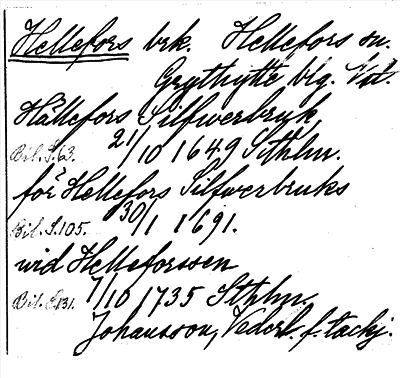 Hellefors brk. Hellefors sn.
Grythytte blg. Vstl.
Hällefors Silfwerbruk
Bil. S. 63. 21/10 1649 Sthlm.
för Hellefors Silfwerbruks
Bil. S. 105. 30/1 1691.
wid Helleforssen
Bil. S. 131. 7/10 1735 Sthlm.
Johansson, Vederl. f. tackj.